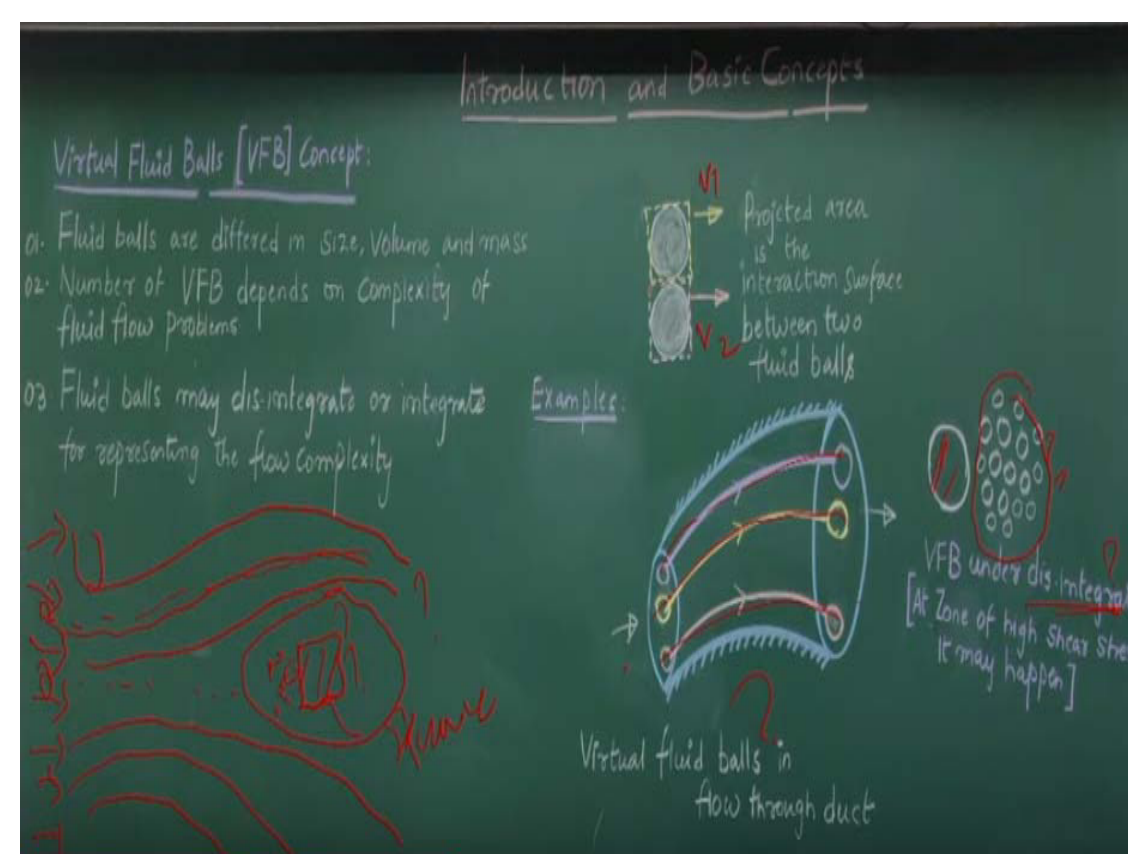 Introduction and Basic Concepts
Virtual Fluid Balls [VFB] Concept:
01. Fluid balls are differed in Size, Volume and mass
02. Number of VFB depends on complexity of
fluid flow problems
03 Fluid balls may dis-integrate or integrate
for representing the flow complexity
V1
V2
Projected area
is the
interaction surface
between two
fluid balls
Examples:
Virtual fluid balls in
flow through duct
VFB under dis-integrat
[At Zone of high shear stre
It may happen]